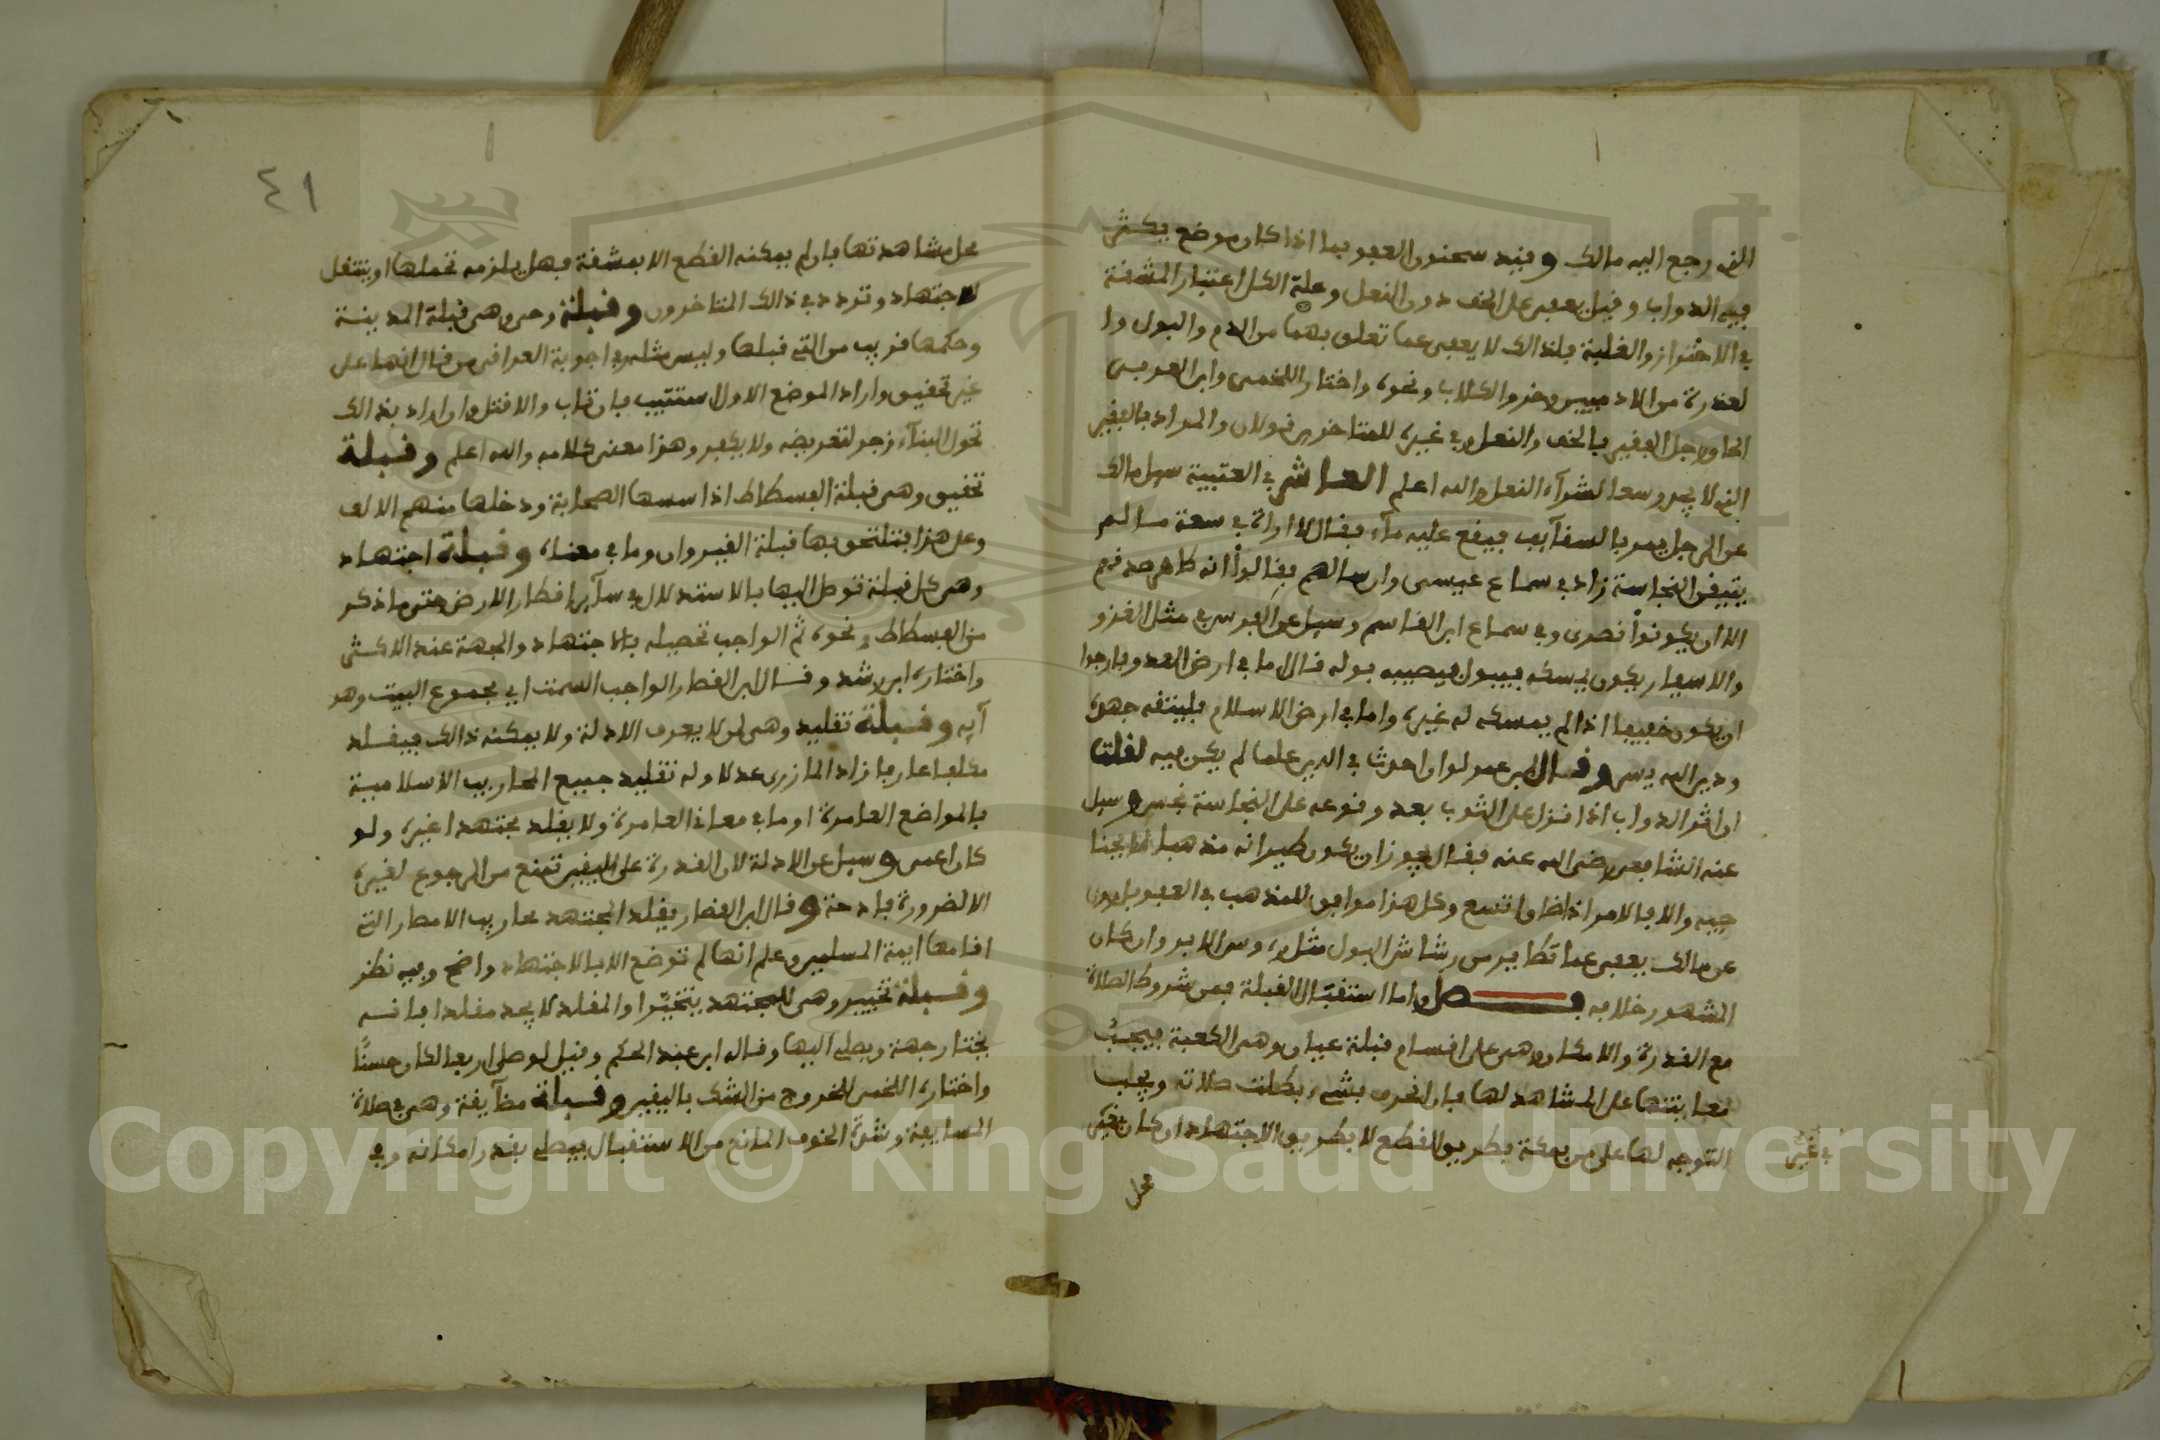 الذى رجع اليه مالك وقيد سحنون العفو بما اذا كان موضع يكثر
فيه الدواب وقيل يعفى على الخف دون النعل وعلة الكل اعتبار المشقة
في الاحتراز والغلبة فلذالك لا يعفى عما تعلق بهما من الدم والبول وا
لعذرة من الادميين وخرو الكلاب ونحوه واختار اللخمى وابن العربى
الحاق رجل الفقير بالخف والنعل وفي غيره للمتاخرين قولان والمراد بالفقير
الذى لا يجد وسعا لشرآء النعل والله اعلم العاشر في العتبية سيل مالك
عن الرجل يمر بالسقآيف فيقع عليه مآء فقال لا اراه في سعة ما لم
يتيقن النجاسة زاد في سماع عيسى وان سالهم فقالوا انه طاهر صدقهم
الا ان يكونوا نصرى وفي سماع ابن القاسم وسيل عن الفرس في مثل الغزو
والاسفار يكون يمسكه فيبول فيصيبه بوله قال اما في ارض العدو فارجوا
ان يكون خفيفا اذا لم يمسكه له غيره واما في ارض الاسلام فليتقه جهده
ودين الله يسر وقال ابن عبدوس احدث في الدين علما لم يكن فيه لقلت
ان اثر الدواب اذا نزل على الثوب بعد وقوعه على النجاسة نجس وسيل
عنه الشافعى رضى الله عنه فقال يجوز ان يكون طيرانه مذهبا لما يجنا
حيه والا فالامر اذا ضاق اتسع وكل هذا موافق للمذهب في العفو فلورود
عن مالك يعفى عما تطاير من رشاش البول مثل روس الابر وان كان
المشهور خلافه فصل واما استقبال القبلة فمن شروط الصلاة
مع القدرة والامكان وهى على اقسام قبلة عيان وهى الكعبة فيجب
معاينتها على المشاهد لها فان انحرف بشىء بطلت صلاته ويجب
التوجه لها على من بمكة بطريق القطع لا بطريق الاجتهاد ان كان
في غير
محل
٤١
محل مشاهدتها فان لم يمكنه القطع الا بمشقة فهل يلزمه تحملها او ينتقل
للاجتهاد وتردد في ذالك المتاخرون وقبلة وحى وهى قبلة المدينة
وحكمها قريب من التى قبلها وليس مثله في اجوبة العراقى من قال انها على
غير تحقيق واراد الموضع الاول استتيب فان تاب والا قتل وان اراد بذالك
تحول البنآء زجر لتعريضه ولا يكفر وهذا معنى كلامه والله اعلم وقبلة
تحقيق وهى قبلة الفسطاط اذا سسها الصحابة ودخلها منهم الالف
وعلى هذا فتلتحق بها قبلة القيروان وما في معناه وقبلة اجتهاد
وهى كل قبلة توصل اليها بالاستدلال في سآير اقطار الارض حتى ما ذكر
من الفسطاط ونحوه ثم الواجب تحصيله بالاجتهاد والجهة عند الاكثر
واختاره ابن رشد وقال ابن القصار الواجب السمت اي مجموع البيت وهو
آيه وقبلة تقليد وهى لمن لا يعرف الادلة ولا يمكنه ذالك فيقلد
مكلفا عارفا زاد المازرى عدلا وله تقليد جميع المحاريب الاسلامية
بالمواضع العامرة او ما في معانى العامرة ولا يقلد مجتهد اغيره ولو
كان اعمى وسيل عن الادلة لان القدرة على اليقين تمنع من الرجوع لغيره
الا لضرورة فادحة وقال ابن القصار يقلد المجتهد محاريب الامصار التى
اقامها ايمة المسلمين وعلم انها لم توضع الا بالاجتهاد واضح وفيه نظر
وقبلة تخيير وهى للمجتهد يتحير او المقلد لا يجد مقلدا فانه
يختار جهة ويصلى اليها وقاله ابن عبد الحكم وقيل لو صلى اربعا لكان حسنا
واختاره اللخمى للخروج من الشك باليقين وقبلة مضآيقة وهى في صلاة
المسايفة وشدة الخوف المانع من الاستقبال فيصلى بقدر امكانه وفي